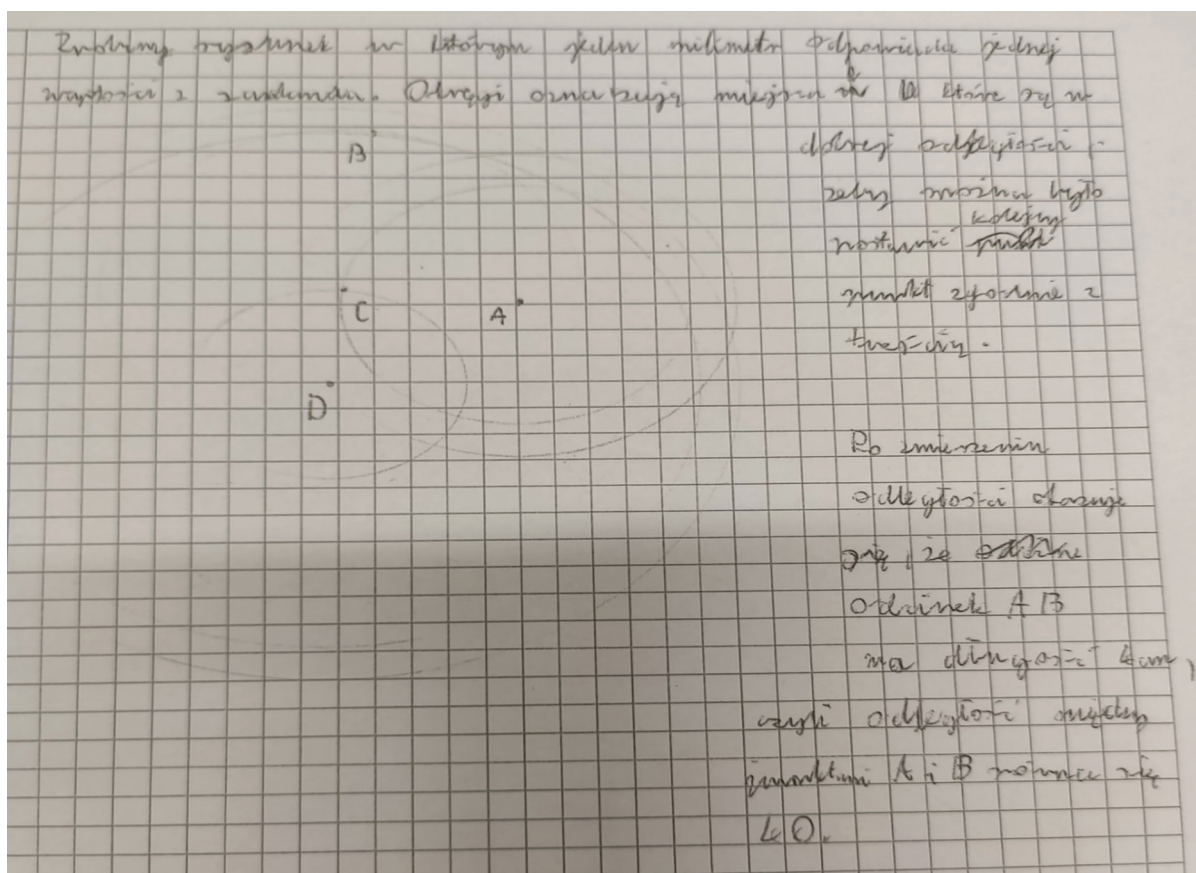 Zróbmy rysunek w którym jeden milimetr odpowiada jednej
wartości z zadania. Okręgi oznaczają miejsca które są w
dobrej odległości
żeby można było
kolejny
postawić
punkt zgodnie z
treścią.
B
C
A
D
Po zmierzeniu
odległości okazuje
się, że
odcinek AB
ma długość 4cm,
czyli odległość między
punktami A i B równa się
40.